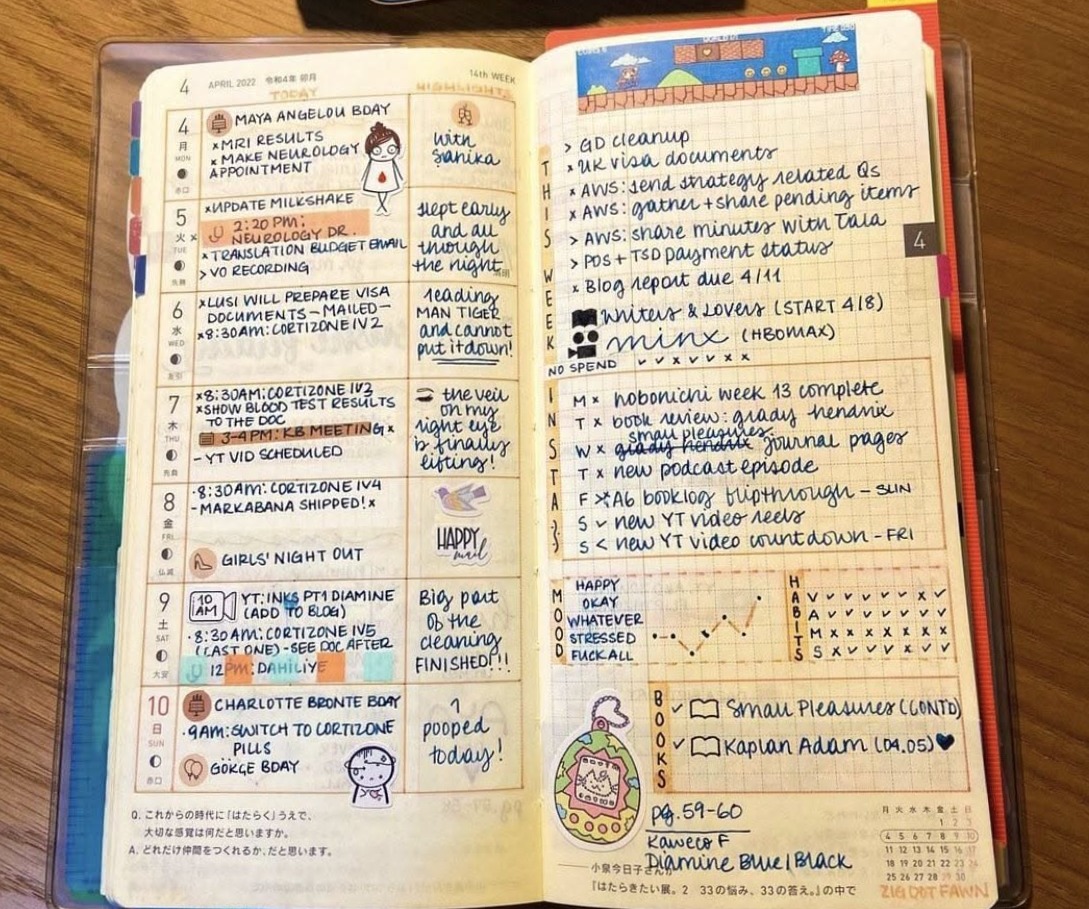 4 APRIL 2022 令和4年 卯月
14th WEEK
TODAY
HIGHLIGHTS
4
月
MON
赤口
MAYA ANGELOU BDAY
x MRI RESULTS
x MAKE NEUROLOGY
APPOINTMENT
with
sanika
5
火 x
TUE
先勝
x UPDATE MILKSHAKE
2:20 PM:
NEUROLOGY DR.
x TRANSLATION BUDGET EMAIL
> VO RECORDING
slept early
and all
through
the night
清明
6
水
WED
友引
x LUSI WILL PREPARE VISA
DOCUMENTS - MAILED -
x 8:30AM: CORTIZONE IV2
reading
MAN TIGER
and cannot
put it down!
7
木
THU
先負
x 8:30AM: CORTIZONE IV3
x SHOW BLOOD TEST RESULTS
TO THE DOC
3-4 PM: KB MEETING x
- YT VID SCHEDULED
the veil
on my
right eye
is finally
lifting!
8
金
FRI
仏滅
· 8:30AM: CORTIZONE IV4
- MARKABANA SHIPPED! x
GIRLS' NIGHT OUT
HAPPY
mail
9
土
SAT
大安
10
AM
YT: INKS PT1 DIAMINE
(ADD TO BLOG)
· 8:30AM: CORTIZONE IV5
(LAST ONE) - SEE DOC AFTER
12PM: DAHİLİYE
Big part
of the
cleaning
FINISHED!!!
10
日
SUN
赤口
CHARLOTTE BRONTE BDAY
· 9AM: SWITCH TO CORTIZONE
PILLS
GÖKÇE BDAY
I
pooped
today!
Q. これからの時代に「はたらく」うえで、
大切な感覚は何だと思いますか。
A. どれだけ仲間をつくれるか、だと思います。
THIS WEEK
> GD cleanup
x UK visa documents
x AWS: send strategy related Qs
x AWS: gather + share pending items
> AWS: share minutes with Tala
> POS + TSD payment status
x Blog report due 4/11
Writers & Lovers (START 4/8)
minx (HBOMAX)
NO SPEND ✓ ✓ x ✓ ✓ x x
4
INSTA
M x hobonichi week 13 complete
T x book review: grady hendrix
small pleasures
W x grady hendrix journal pages
T x new podcast episode
F x A6 booklog flipthrough - SUN
S ✓ new YT video reels
S < new YT video countdown - FRI
MOOD
HAPPY
OKAY
WHATEVER
STRESSED
FUCK ALL
HABITS
V ✓ ✓ ✓ ✓ ✓ x ✓
A ✓ ✓ ✓ ✓ ✓ ✓ ✓
M x x x x x x x
S x ✓ ✓ ✓ ✓ ✓ ✓
BOOKS
✓ Small Pleasures (CONTD)
✓ Kaplan Adam (04.05)
pg. 59-60
Kaweco F
Diamine Blue/Black
小泉今日子さんが
『はたらきたい展。2 33の悩み、33の答え。』の中で
月 火 水 木 金 土 日
1 2 3
4 5 6 7 8 9 10
11 12 13 14 15 16 17
18 19 20 21 22 23 24
25 26 27 28 29 30
ZIG DOT FAWN